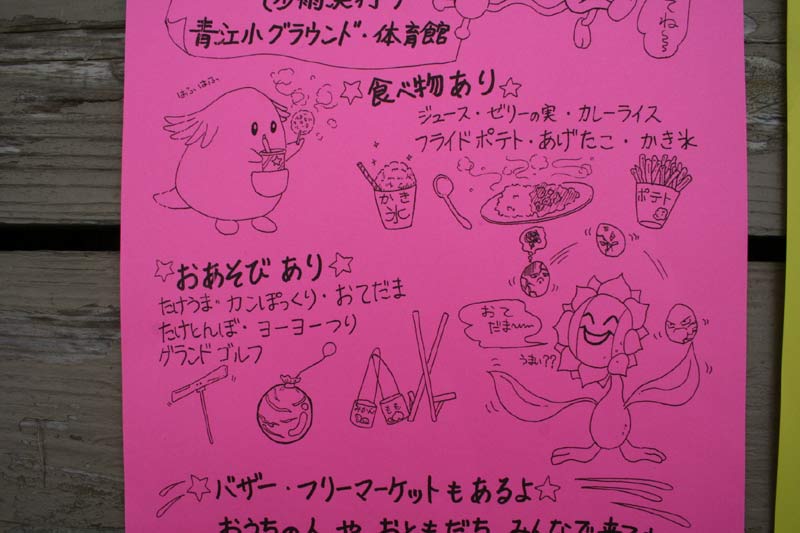 少雨決行
青江小グラウンド・体育館
てね〜
はふはふ
☆食べ物あり☆
ジュース・ゼリーの実・カレーライス
フライドポテト・あげたこ・かき氷
かき氷
ポテト
☆おあそびあり☆
たけうま・カンぽっくり・おてだま
たけとんぼ・ヨーヨーつり
グランドゴルフ
おてだま〜
うまい??
みかん
もも
☆バザー・フリーマーケットもあるよ☆
おうちの人やおともだちみんなで来てね